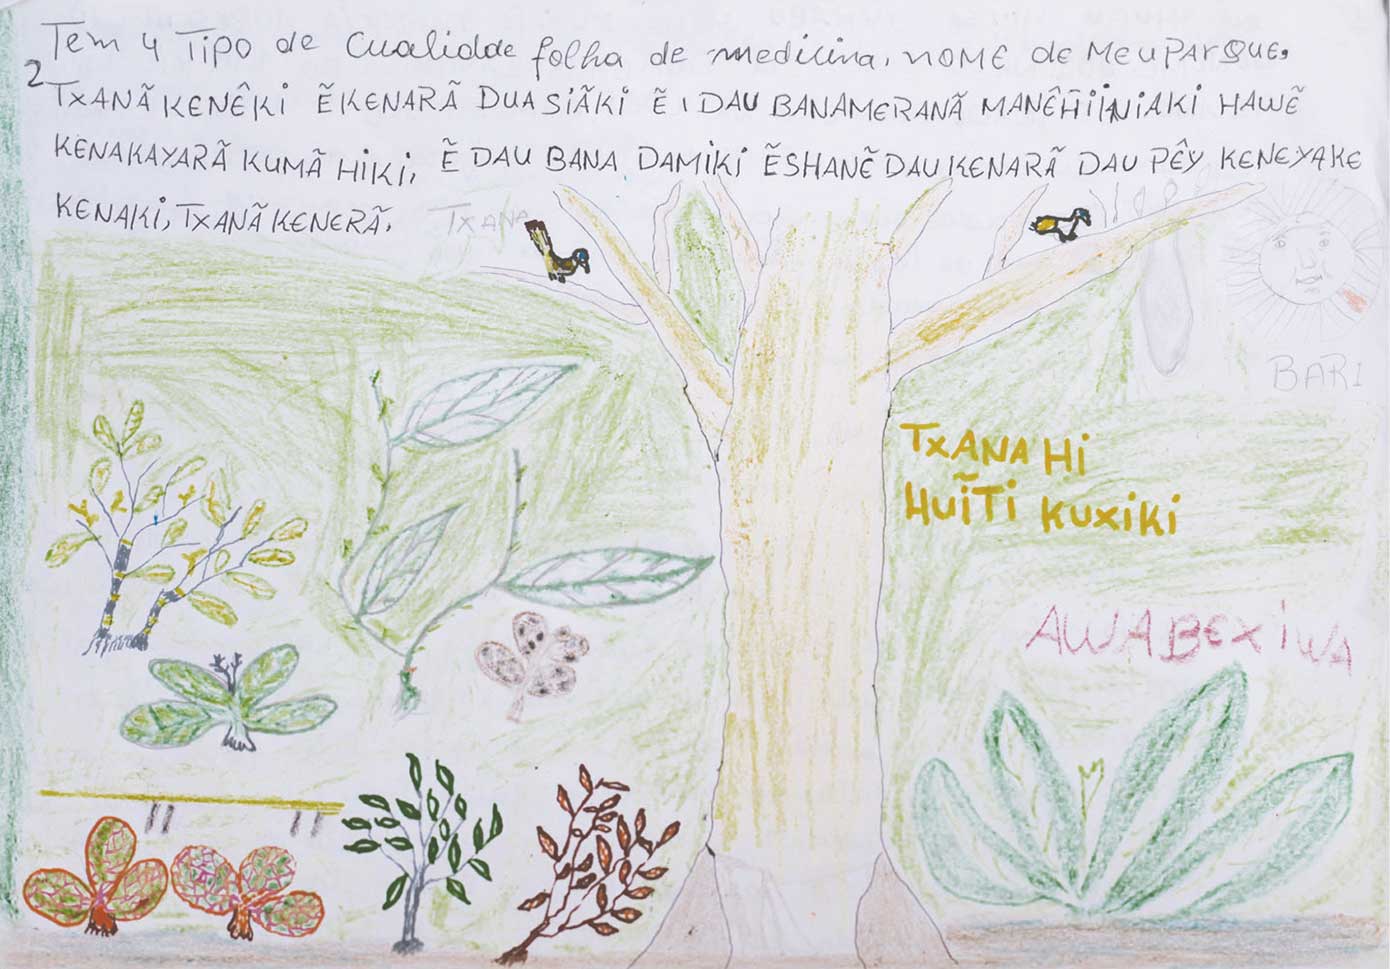 Tem 4 Tipo de Cualidde folha de medicina, NOME de MeU PARQUE.
2
TXANÃ KENÊKI ẼKENARÃ DUA SIÃKI Ẽ I DAU BANAMERANÃ MANÊHIINIAKI HAWẼ
KENAKAYARÃ KUMÃ HIKI, Ẽ DAU BANA DAMIKI ẼSHANẼ DAU KENARÃ DAU PÊY KENEYAKE
KENAKI, TXANÃ KENERÃ.
TXANA
BARI
TXANA HI
HUĨTI KUXIKI
AWABEXIWA